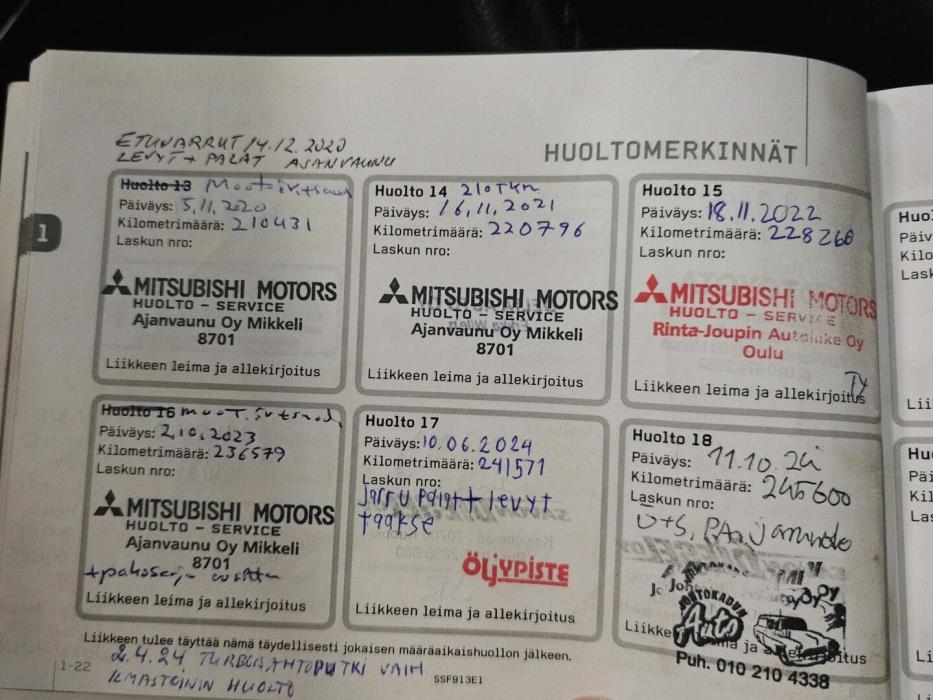 ETUVARRUT 14.12.2020
LEVYT + PALAT AJANVAUNU
HUOLTOMERKINNÄT
1
Huolto 13
Päiväys: 5.11.2020
Kilometrimäärä: 210431
Laskun nro:
MITSUBISHI MOTORS
HUOLTO - SERVICE
Ajanvaunu Oy Mikkeli
8701
Liikkeen leima ja allekirjoitus
Huolto 14 210 TKM
Päiväys: 16.11.2021
Kilometrimäärä: 220796
Laskun nro:
MITSUBISHI MOTORS
HUOLTO - SERVICE
Ajanvaunu Oy Mikkeli
8701
Liikkeen leima ja allekirjoitus
Huolto 15
Päiväys: 18.11.2022
Kilometrimäärä: 228260
Laskun nro:
MITSUBISHI MOTORS
HUOLTO - SERVICE
Rinta-Joupin Autoliike Oy
Oulu
Liikkeen leima ja allekirjoitus
Huolto 16
Päiväys: 2.10.2023
Kilometrimäärä: 236579
Laskun nro:
MITSUBISHI MOTORS
HUOLTO - SERVICE
Ajanvaunu Oy Mikkeli
8701
Liikkeen leima ja allekirjoitus
Huolto 17
Päiväys: 10.06.2024
Kilometrimäärä: 241571
Laskun nro:
Jarrupalat + levyt
taakse
ÖLJYPISTE
Liikkeen leima ja allekirjoitus
Huolto 18
Päiväys: 11.10.24
Kilometrimäärä: 245600
Laskun nro:
Ö+S, P.A., jarruneste
Auto
Puh. 010 210 4338
Liikkeen tulee täyttää nämä täydellisesti jokaisen määräaikaishuollon jälkeen.
1-22
2.4.24 TURBON AHTOPUTKI VAIH
ILMASTOINNIN HUOLTO
SSF913E1